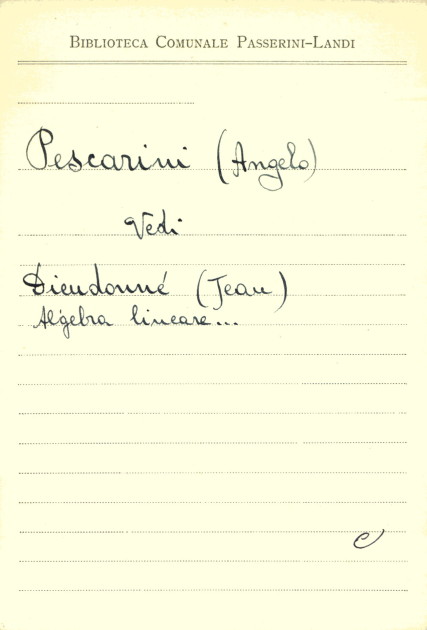 Biblioteca Comunale Passerini-Landi
Pescarini (Angelo)
Vedi
Dieudonné (Jean)
Algebra lineare...